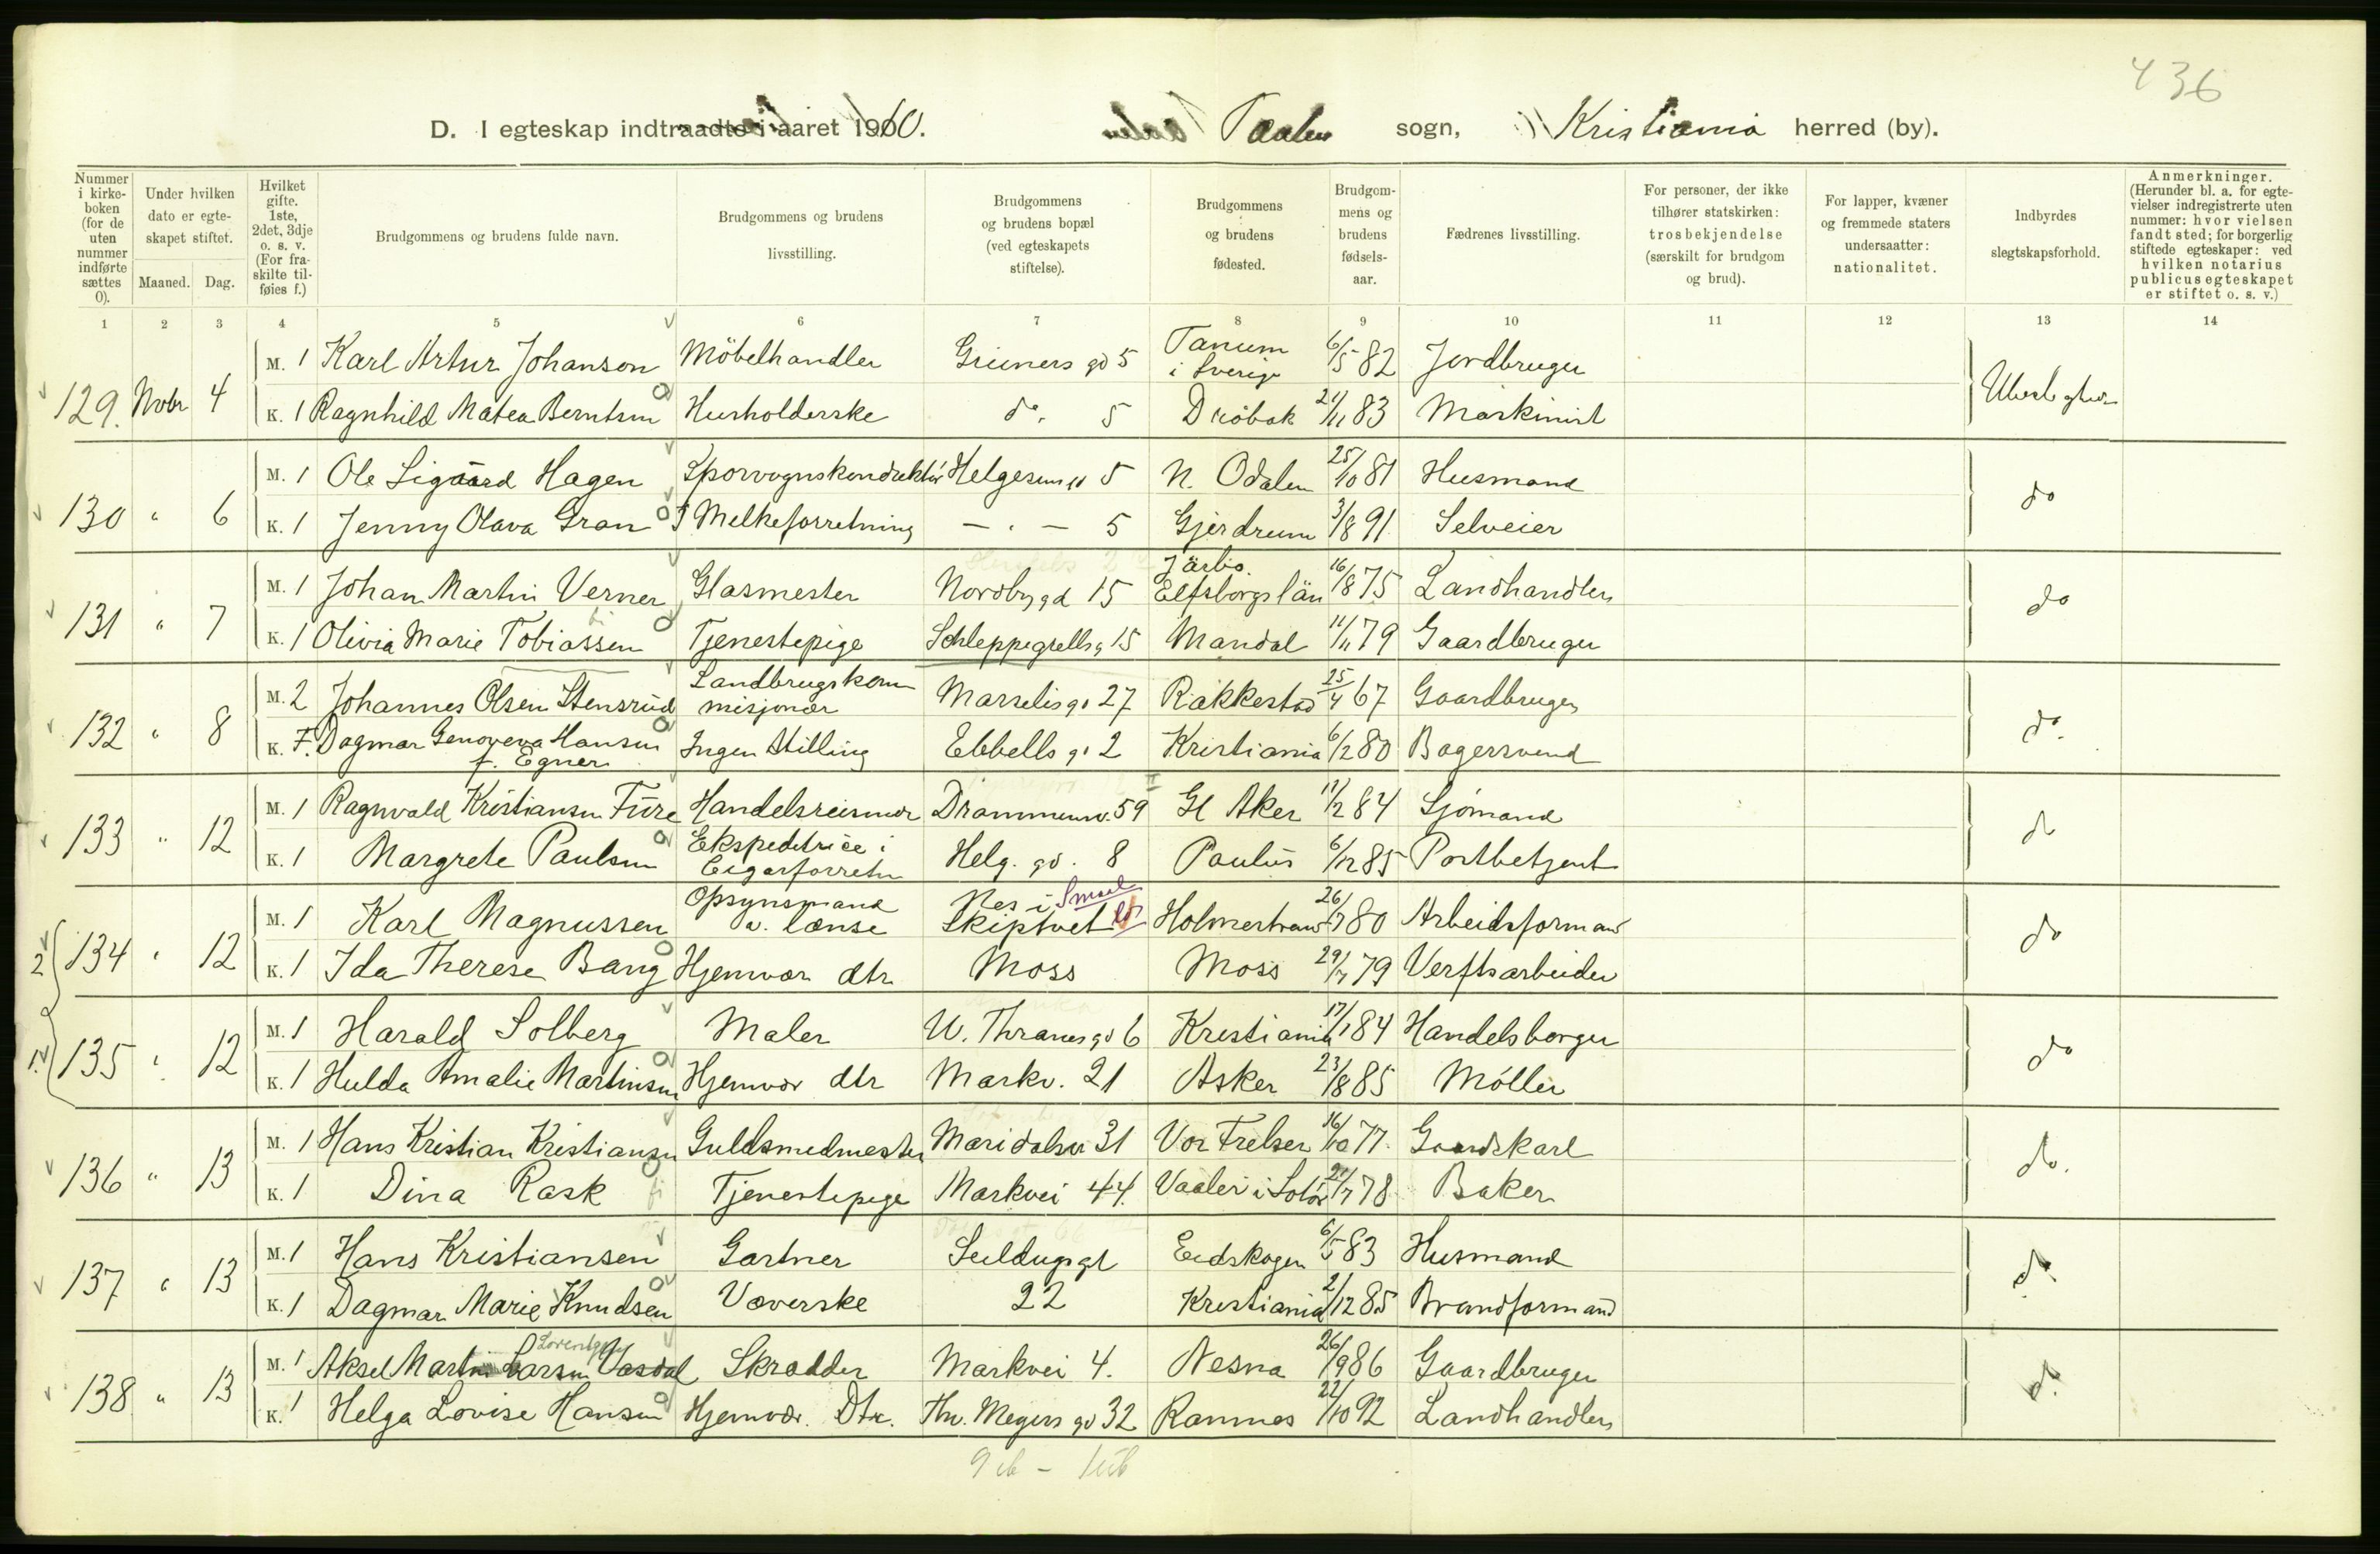 436
D. I egteskap indtraadte i aaret 1910. Paulus sogn, Kristiania herred (by).
Nummer i kirkeboken (for de uten nummer indførte sættes 0).
Under hvilken dato er egteskapet stiftet.
Maaned. Dag.
Hvilket gifte. 1ste, 2det, 3dje o. s. v. (For fraskilte tilføies f.)
Brudgommens og brudens fulde navn.
Brudgommens og brudens livsstilling.
Brudgommens og brudens bopæl (ved egteskapets stiftelse).
Brudgommens og brudens fødested.
Brudgommens og brudens fødselsaar.
Fædrenes livsstilling.
For personer, der ikke tilhører statskirken: trosbekjendelse (særskilt for brudgom og brud).
For lapper, kvæner og fremmede staters undersaatter: nationalitet.
Indbyrdes slegtskapsforhold.
Anmerkninger. (Herunder bl. a. for egtevielser indregistrerte uten nummer: hvor vielsen fandt sted; for borgerlig stiftede egteskaper: ved hvilken notarius publicus egteskapet er stiftet o. s. v.)
1 2 3 4 5 6 7 8 9 10 11 12 13 14
129. Novbr 4 M. 1 Karl Artur Johanson Möbelhandler Grüners gd 5 Tanum i Sverige 6/5 82 Jordbruger
K. 1 Ragnhild Matea Berntsen Husholderske do. 5 Dröbak 21/11 83 Maskinist
130 " 6 M. 1 Ole Sigaard Hagen Sporvognskonduktör Helgesens gd 5 N. Odalen 25/10 81 Husmand do
K. 1 Jenny Olava Gran I Melkeforretning — " — 5 Gjerdrum 3/8 91 Selveier
131 " 7 M. 1 Johan Martin Verner Glasmester Nordbygd 15 Järbo. Elfsborgs län 16/8 75 Landhandler do
K. 1 Olivia Marie Tobiassen Tjenestepige Schleppegrells g 15 Mandal 11/11 79 Gaardbruger
132 " 8 M. 2 Johannes Olsen Stensrud Landbrugskommisjonær Marselis gd 27 Rakkestad 25/4 67 Gaardbruger do.
K. F. Dagmar Genoveva Hansen f. Egner Ingen Stilling Ebbells gd 2 Kristiania 6/2 80 Bagersvend
133 " 12 M. 1 Ragnvald Kristiansen Füre Handelsreisende Drammensv. 59 Gl Aker 11/2 84 Sjömand do
K. 1 Margrete Paulsen Ekspeditrice i Cigarforretn Helg. gd. 8 Paulus 6/12 85 Postbetjent
2 134 " 12 M. 1 Karl Magnussen Opsynsmand v. lænse Nes i Skiptvet Smaal Holmestrand 26/7 80 Arbeidsformand do
K. 1 Ida Therese Bang Hjemvær dtr. Moss Moss 29/7 79 Verftsarbeider
1 135 " 12 M. 1 Harald Solberg Maler W. Thranes gd 6 Kristiania 17/1 84 Handelsborger do
K. 1 Hulda Amalie Martinsen Hjemvær dtr Markv. 21 Asker 23/8 85 Möller
136 " 13 M. 1 Hans Kristian Kristiansen Guldsmedmester Maridalsv 31 Vor Frelser 16/10 77 Gaardskarl do.
K. 1 Dina Rask Tjenestepige Markvei 44. Vaaler i Solör 21/7 78 Baker
137 " 13 M. 1 Hans Kristiansen Gartner Seildugsgt Eidskogen 6/5 83 Husmand do.
K. 1 Dagmar Marie Knudsen Væverske 22 Kristiania 2/12 85 Brandformand
138 " 13 M. 1 Aksel Martin Larsen Vasdal Skrædder Markvei 4. Nesna 26/9 86 Gaardbruger do.
K. 1 Helga Lovise Hansen Hjemvær. Dtr. Thv. Meyers gd 32 Ramnes 22/10 92 Landhandler